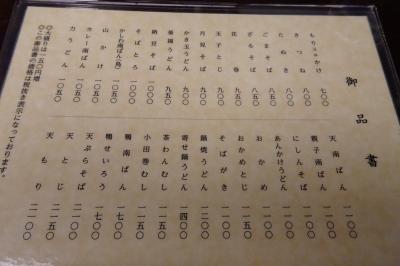 御品書
もり・かけ 七〇〇
きつね 八五〇
たぬき 八五〇
ごまそば 八五〇
ざるそば 八五〇
花巻
玉子とじ 九五〇
月見そば 九五〇
かき玉うどん 九五〇
うどん 九五〇
納豆そば 一〇五〇
かしわ南ばん(鳥) 一〇五〇
そばとろ 一〇五〇
山かけ 一〇五〇
カレー南ばん 一〇五〇
力うどん 一〇五〇
天南ばん 一一〇〇
親子南ばん 一一〇〇
あんかけうどん 一一〇〇
にしんそば 一一〇〇
おかめ 一一〇〇
おかめとじ 一一五〇
そばがき 一一〇〇
鍋焼うどん 一二〇〇
寄せ鍋うどん 一四〇〇
茶わんむし 一一五〇
小田巻むし 一一五〇
鴨南ばん 一七〇〇
鴨せいろう 一七〇〇
天ぷらそば 二一〇〇
天とじ 二一五〇
天もり 二一〇〇
◎大盛りは一五〇円増
◎この御品書の価格は税抜き表示になっております。